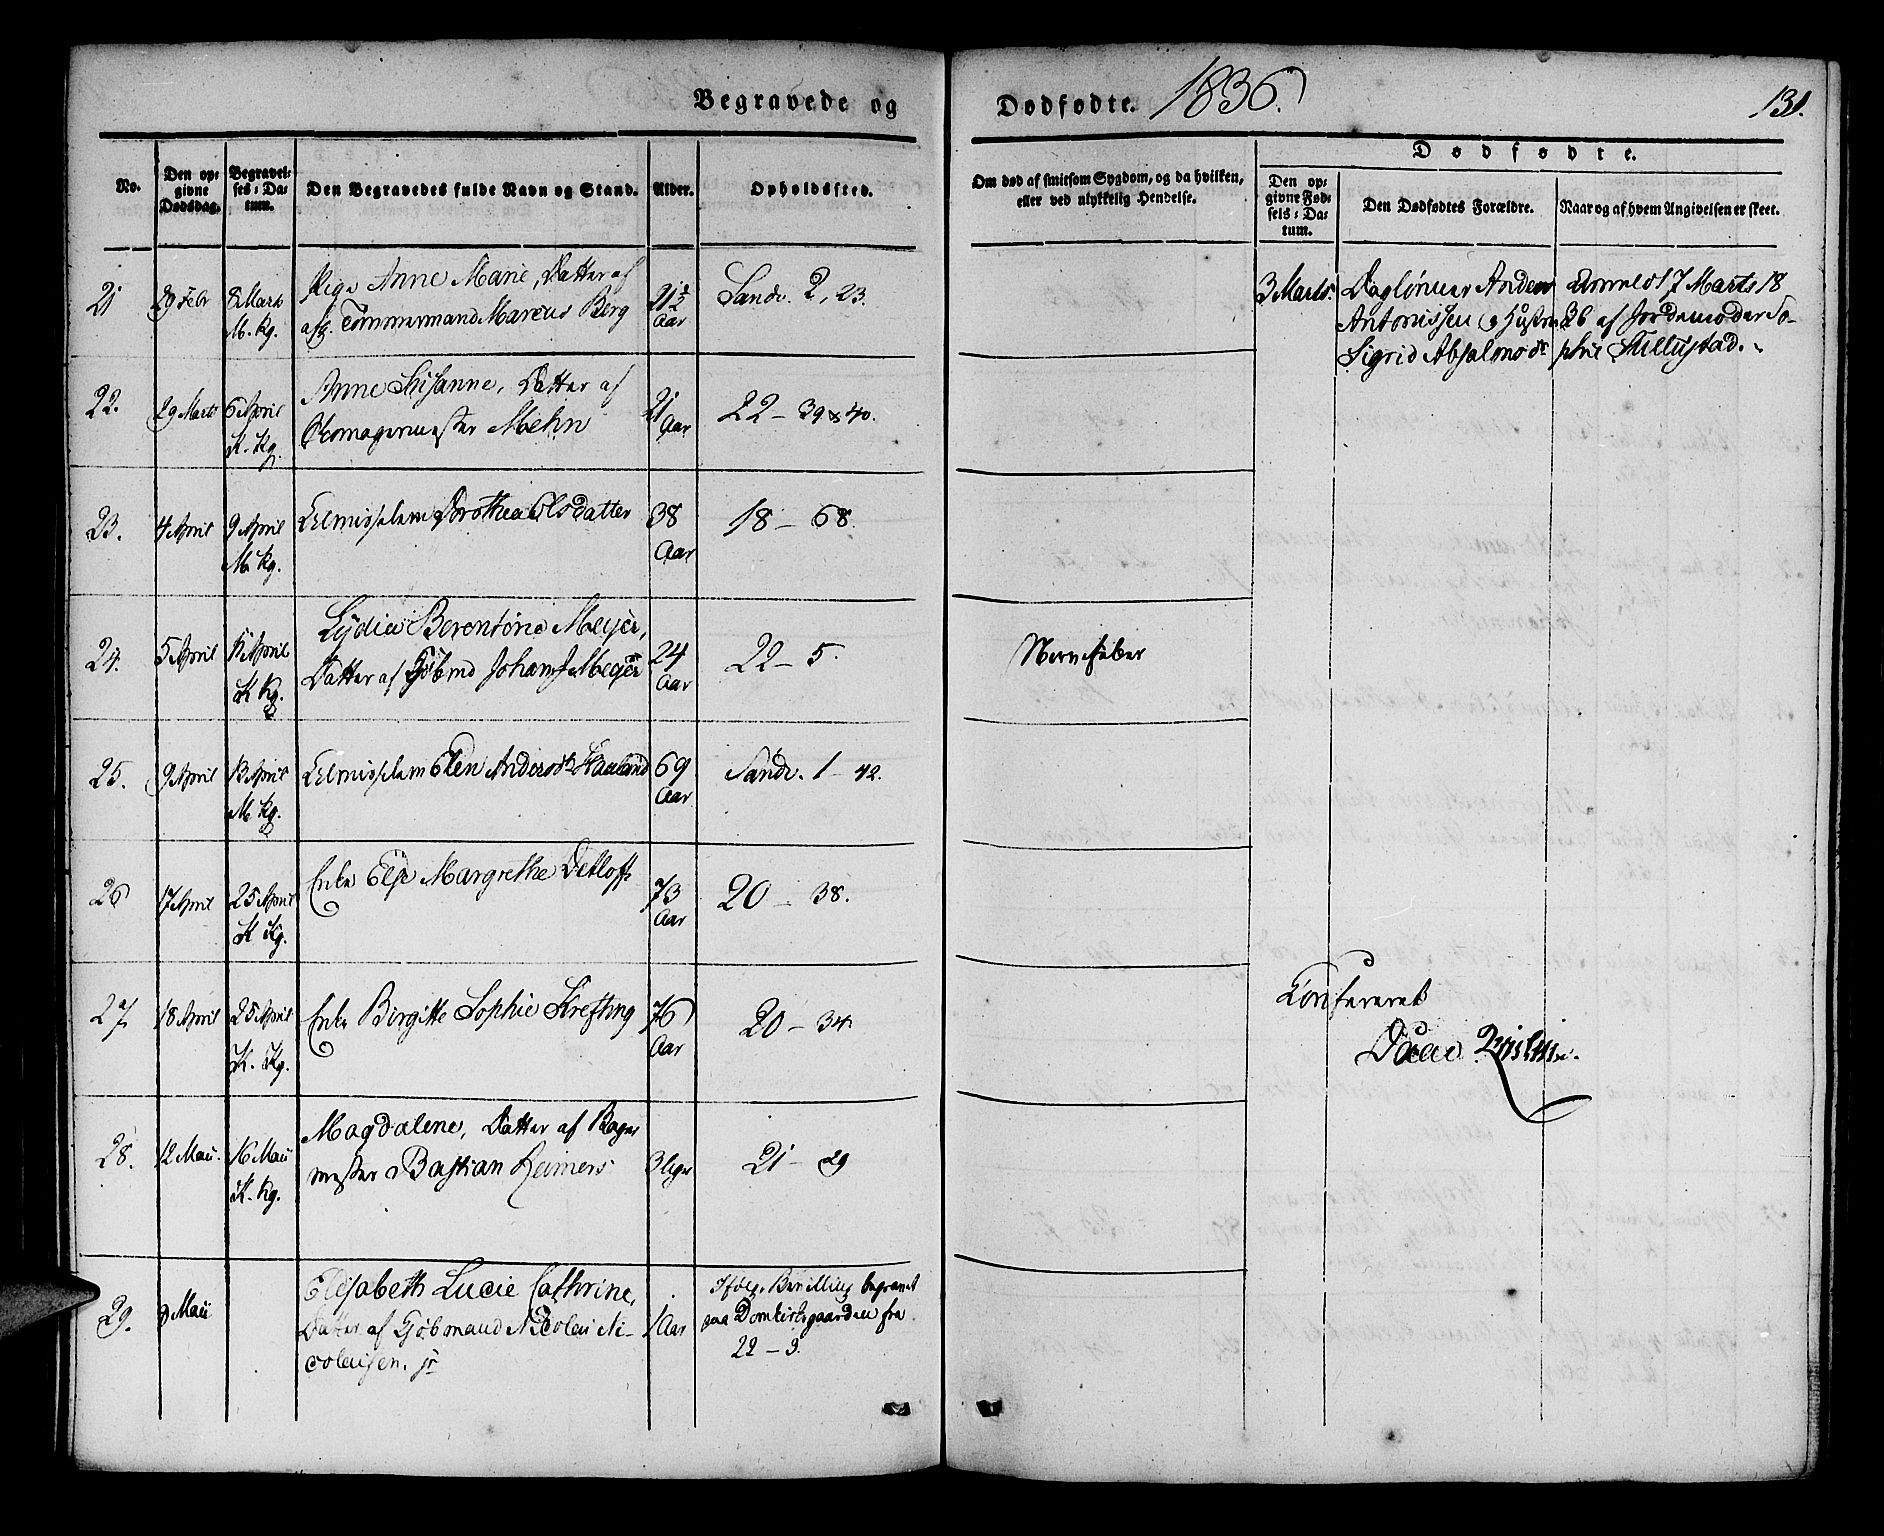 Begravede og
Dødfødte. 1836.
131.
No.
Den op-
givne
Dødsdag.
Begravel-
ses-Da-
tum.
Den Begravedes fulde Navn og Stand.
Alder.
Opholdssted.
Om død af smitsom Sygdom, og da hvilken,
eller ved ulykkelig Hendelse.
Dødfødte.
Den op-
givne Fød-
sels-Da-
tum.
Den Dødfødtes Forældre.
Naar og af hvem Angivelsen er skeet.
21 29 Febr 8 Marts M. Kg.
Pige Anne Marie, Datter af
afg. Tømmermand Marcus Berg
21½ Aar
Sandv. 2, 23.
3 Marts.
Daglønner Anders
Antonissen og Hustru
Sigrid Absalonsdr
Anmeldt 17 Marts 18
36 af Jordemoder So-
phie Tillustad.
22. 29 Marts 6 April K. Kg.
Anne Susanne, Datter af
Skomagermester Mehn
21 Aar
22 – 39 & 40.
23. 4 April 9 April M Kg.
Almisselem Dorothea Olsdatter
38 Aar
18 – 68.
24. 5 April April K Kg.
Lydia Berentine Meyer,
Datter af Kjøbmd Johan J Meyer
24 Aar
22 – 5.
Nervefeber
25. 9 April 13 April M Kg.
Almisselem Elen Andersdtr Haaland
69 Aar
Sandv. 1 – 42.
26 17 April 25 April K Kg.
Enke Else Margrethe Detloffs
73 Aar
20 – 38.
27 18 April 25 April K. Kg.
Enke Birgitte Sophie Krefting
76 Aar
20 – 34.
Confereret
28. 12 Maii. 16 Maii K. Kg.
Magdalene, Datter af Bager
mester Bastian Reimers
3 Uger
21 – 29
29. 9 Maii
Elisabeth Lucie Cathrine,
Datter af Kjøbmand Nicolai Ni-
colaisen. jr
1 Aar
Ifølg. Bevilling begravet
paa Domkirkegaarden fra
22 – 3.